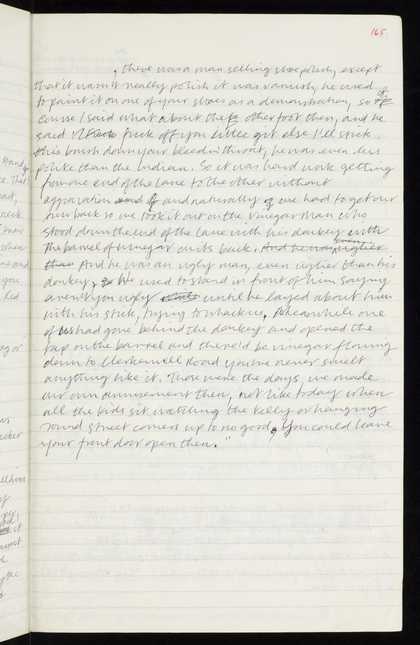 165
, there was a man selling shoe polish, except
that it wasn't really polish it was varnish, he used
to paint it on one of your shoes as a demonstration, so of
course I said what about the other foot then, and he
said fuck off you little git else I'll stick
this brush down your bleedin throat, he was even less
polite than the Indian. So it was hard work getting
from one end of the lane to the other without
aggravation and naturally we had to get our
own back so we took it out on the vinegar man who
stood down the end of the lane with his donkey with
the barrel of vinegar on its back. And he was uglier
than And he was an ugly man, even uglier than his
donkey, We used to stand in front of him saying
aren't you ugly until he layed about him
with his stick, trying to whack us. Meanwhile one
of us had gone behind the donkey and opened the
tap on the barrel and there'd be vinegar flowing
down to Clerkenwell Road you've never smelt
anything like it. Those were the days, we made
our own amusement then, not like today when
all the kids sit watching the telly or hanging
round street corners up to no good, you could leave
your front door open then."